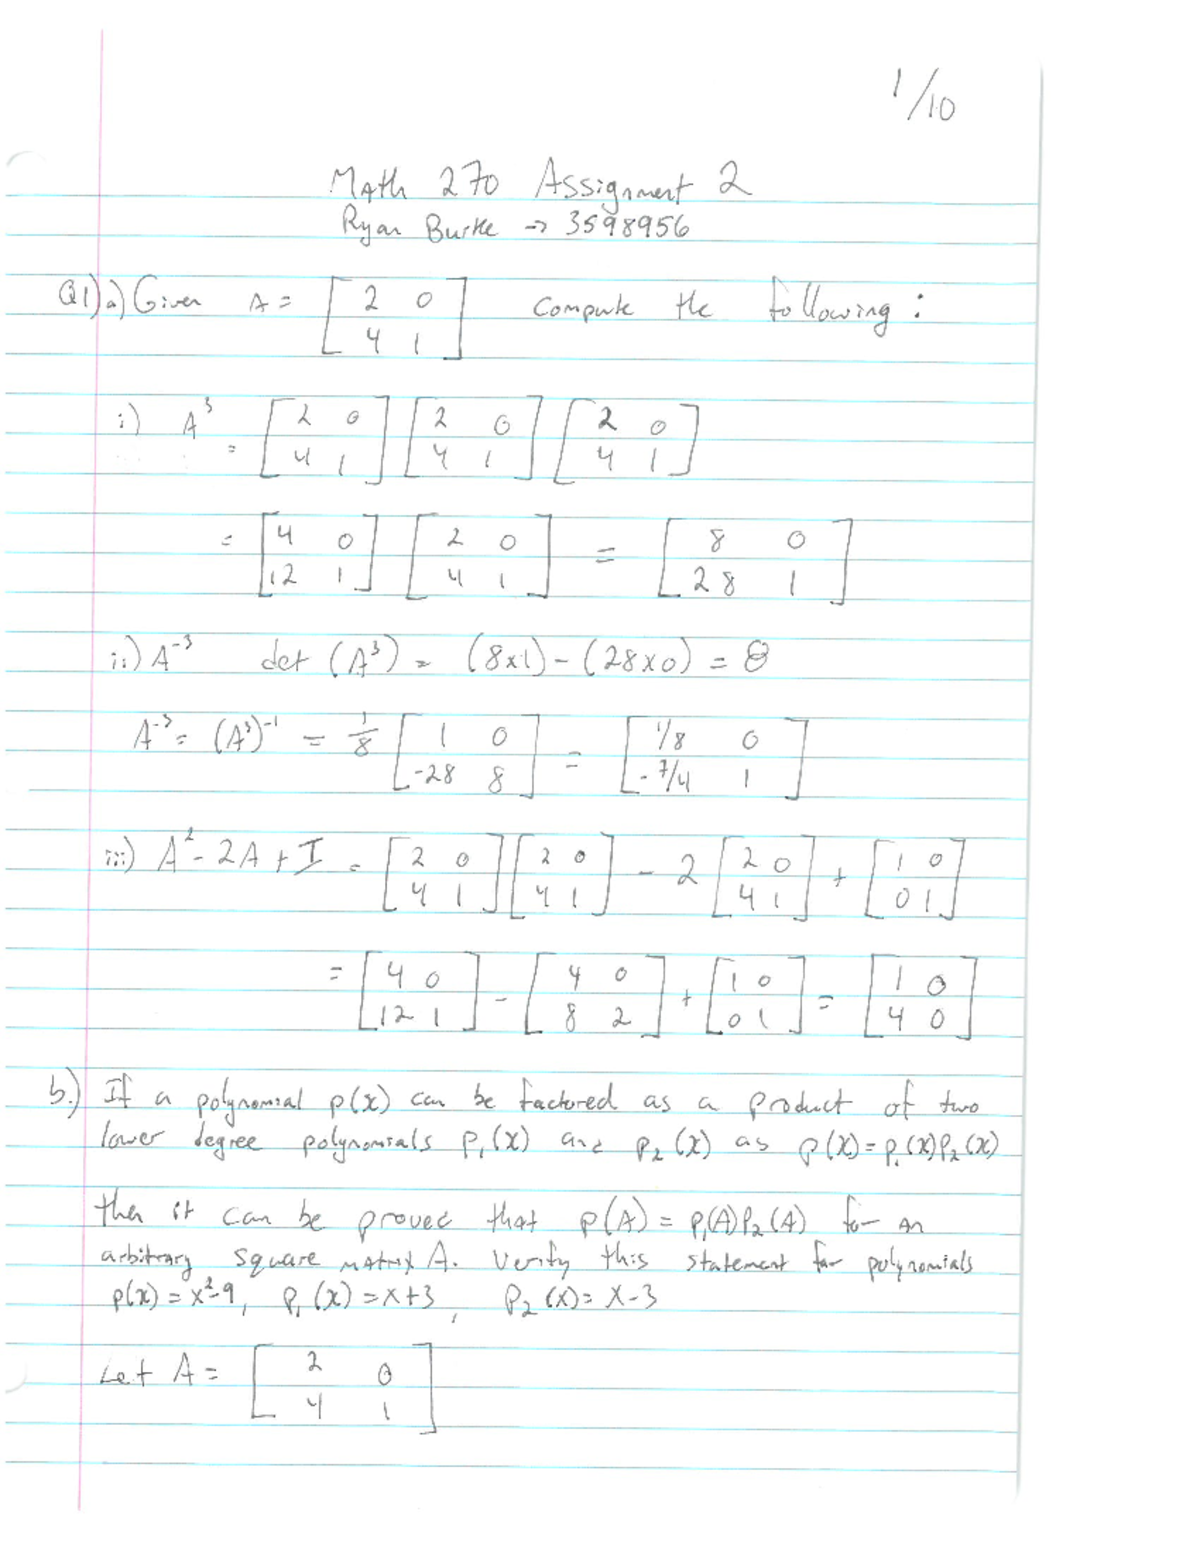 1/10
Math 270 Assignment 2
Ryan Burke → 3598956
Q1) a) Given A = [2 0; 4 1] Compute the following:
i) A³ = [2 0; 4 1] [2 0; 4 1] [2 0; 4 1]
= [4 0; 12 1] [2 0; 4 1] = [8 0; 28 1]
ii) A⁻³ det (A³) = (8x1) - (28x0) = 8
A⁻³ = (A³)⁻¹ = 1/8 [1 0; -28 8] = [1/8 0; -7/4 1]
iii) A² - 2A + I = [2 0; 4 1] [2 0; 4 1] - 2 [2 0; 4 1] + [1 0; 0 1]
= [4 0; 12 1] - [4 0; 8 2] + [1 0; 0 1] = [1 0; 4 0]
b.) If a polynomial p(x) can be factored as a product of two
lower degree polynomials P₁(x) and P₂(x) as p(x) = P₁(x)P₂(x)
then it can be proved that p(A) = P₁(A)P₂(A) for an
arbitrary square matrix A. Verify this statement for polynomials
p(x) = x²-9, P₁(x) = x+3, P₂(x) = x-3
Let A = [2 0; 4 1]